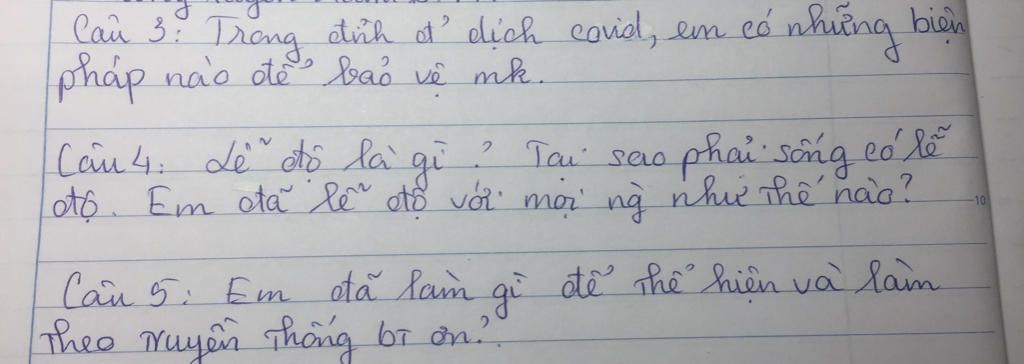 Câu 3: Trong đỉnh ở dịch covid, em có những biện
pháp nào để bảo vệ mk.
Câu 4: Lễ độ là gì? Tại sao phải sống có lễ
độ. Em đã lễ độ với mọi ng như thế nào?
10
Câu 5: Em đã làm gì để thể hiện và làm
theo truyền thống bt ơn?